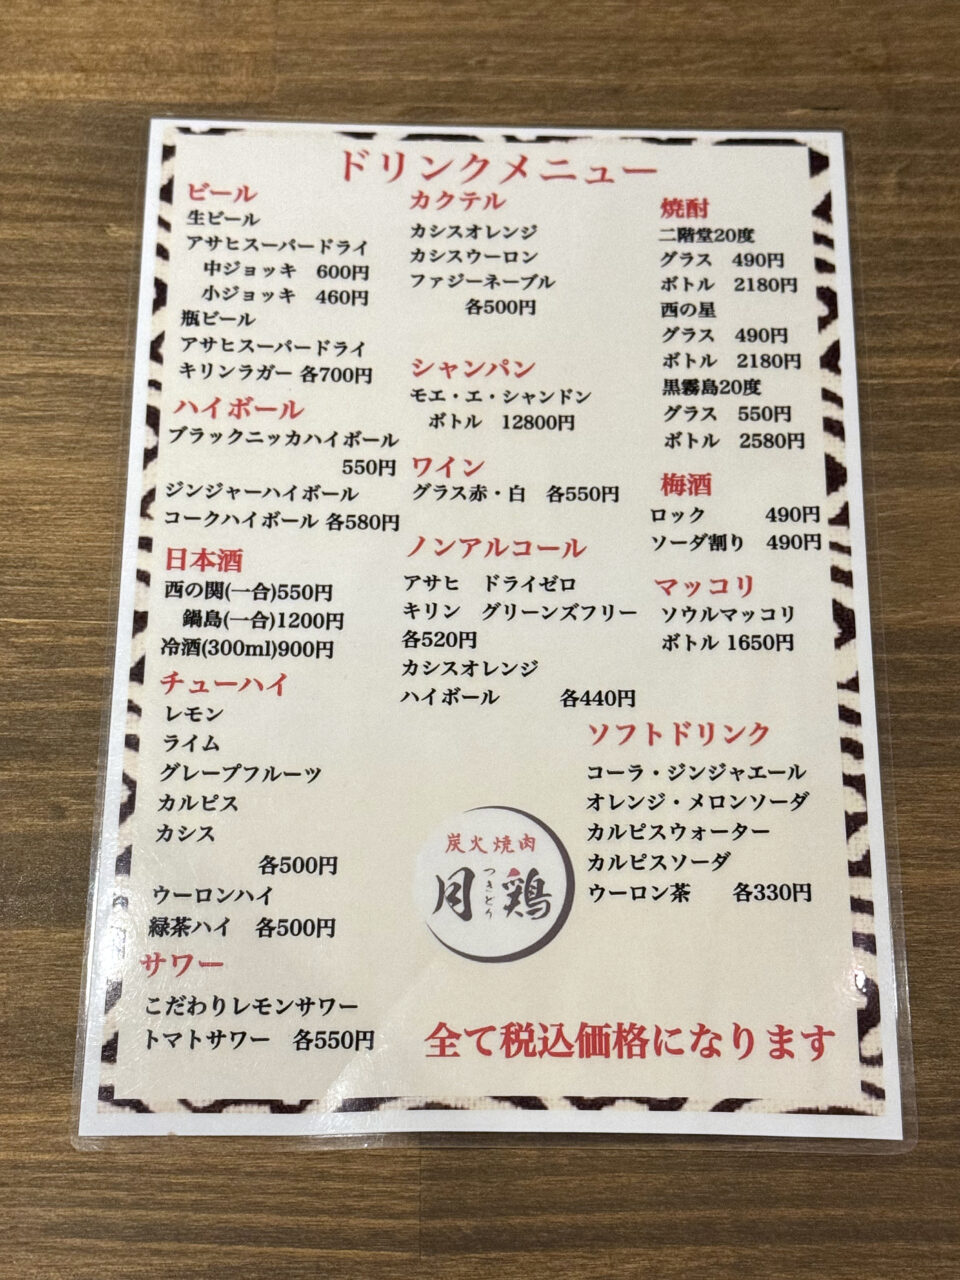 ドリンクメニュー
ビール
生ビール
アサヒスーパードライ
中ジョッキ 600円
小ジョッキ 460円
瓶ビール
アサヒスーパードライ
キリンラガー 各700円
ハイボール
ブラックニッカハイボール
550円
ジンジャーハイボール
コークハイボール 各580円
日本酒
西の関(一合)550円
鍋島(一合)1200円
冷酒(300ml)900円
チューハイ
レモン
ライム
グレープフルーツ
カルピス
カシス
各500円
ウーロンハイ
緑茶ハイ 各500円
サワー
こだわりレモンサワー
トマトサワー 各550円
カクテル
カシスオレンジ
カシスウーロン
ファジーネーブル
各500円
シャンパン
モエ・エ・シャンドン
ボトル 12800円
ワイン
グラス赤・白 各550円
ノンアルコール
アサヒ ドライゼロ
キリン グリーンズフリー
各520円
カシスオレンジ
ハイボール 各440円
焼酎
二階堂20度
グラス 490円
ボトル 2180円
西の星
グラス 490円
ボトル 2180円
黒霧島20度
グラス 550円
ボトル 2580円
梅酒
ロック 490円
ソーダ割り 490円
マッコリ
ソウルマッコリ
ボトル 1650円
ソフトドリンク
コーラ・ジンジャエール
オレンジ・メロンソーダ
カルピスウォーター
カルピスソーダ
ウーロン茶 各330円
炭火焼肉
月鶏
つきどり
全て税込価格になります